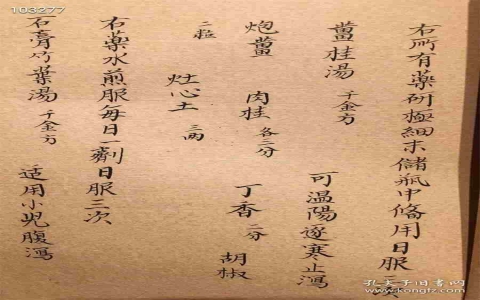 右所有藥研極細末儲瓶中備用日服二次
薑桂湯 千金方 可温陽逐寒止瀉
炮薑 肉桂 各三分 丁香 二分 胡椒
二粒 灶心土 三两
右藥水煎服每日一劑日服三次
石膏竹葉湯 千金方 适用小兒腹瀉
103277
孔夫子旧书网
www.kongfz.com